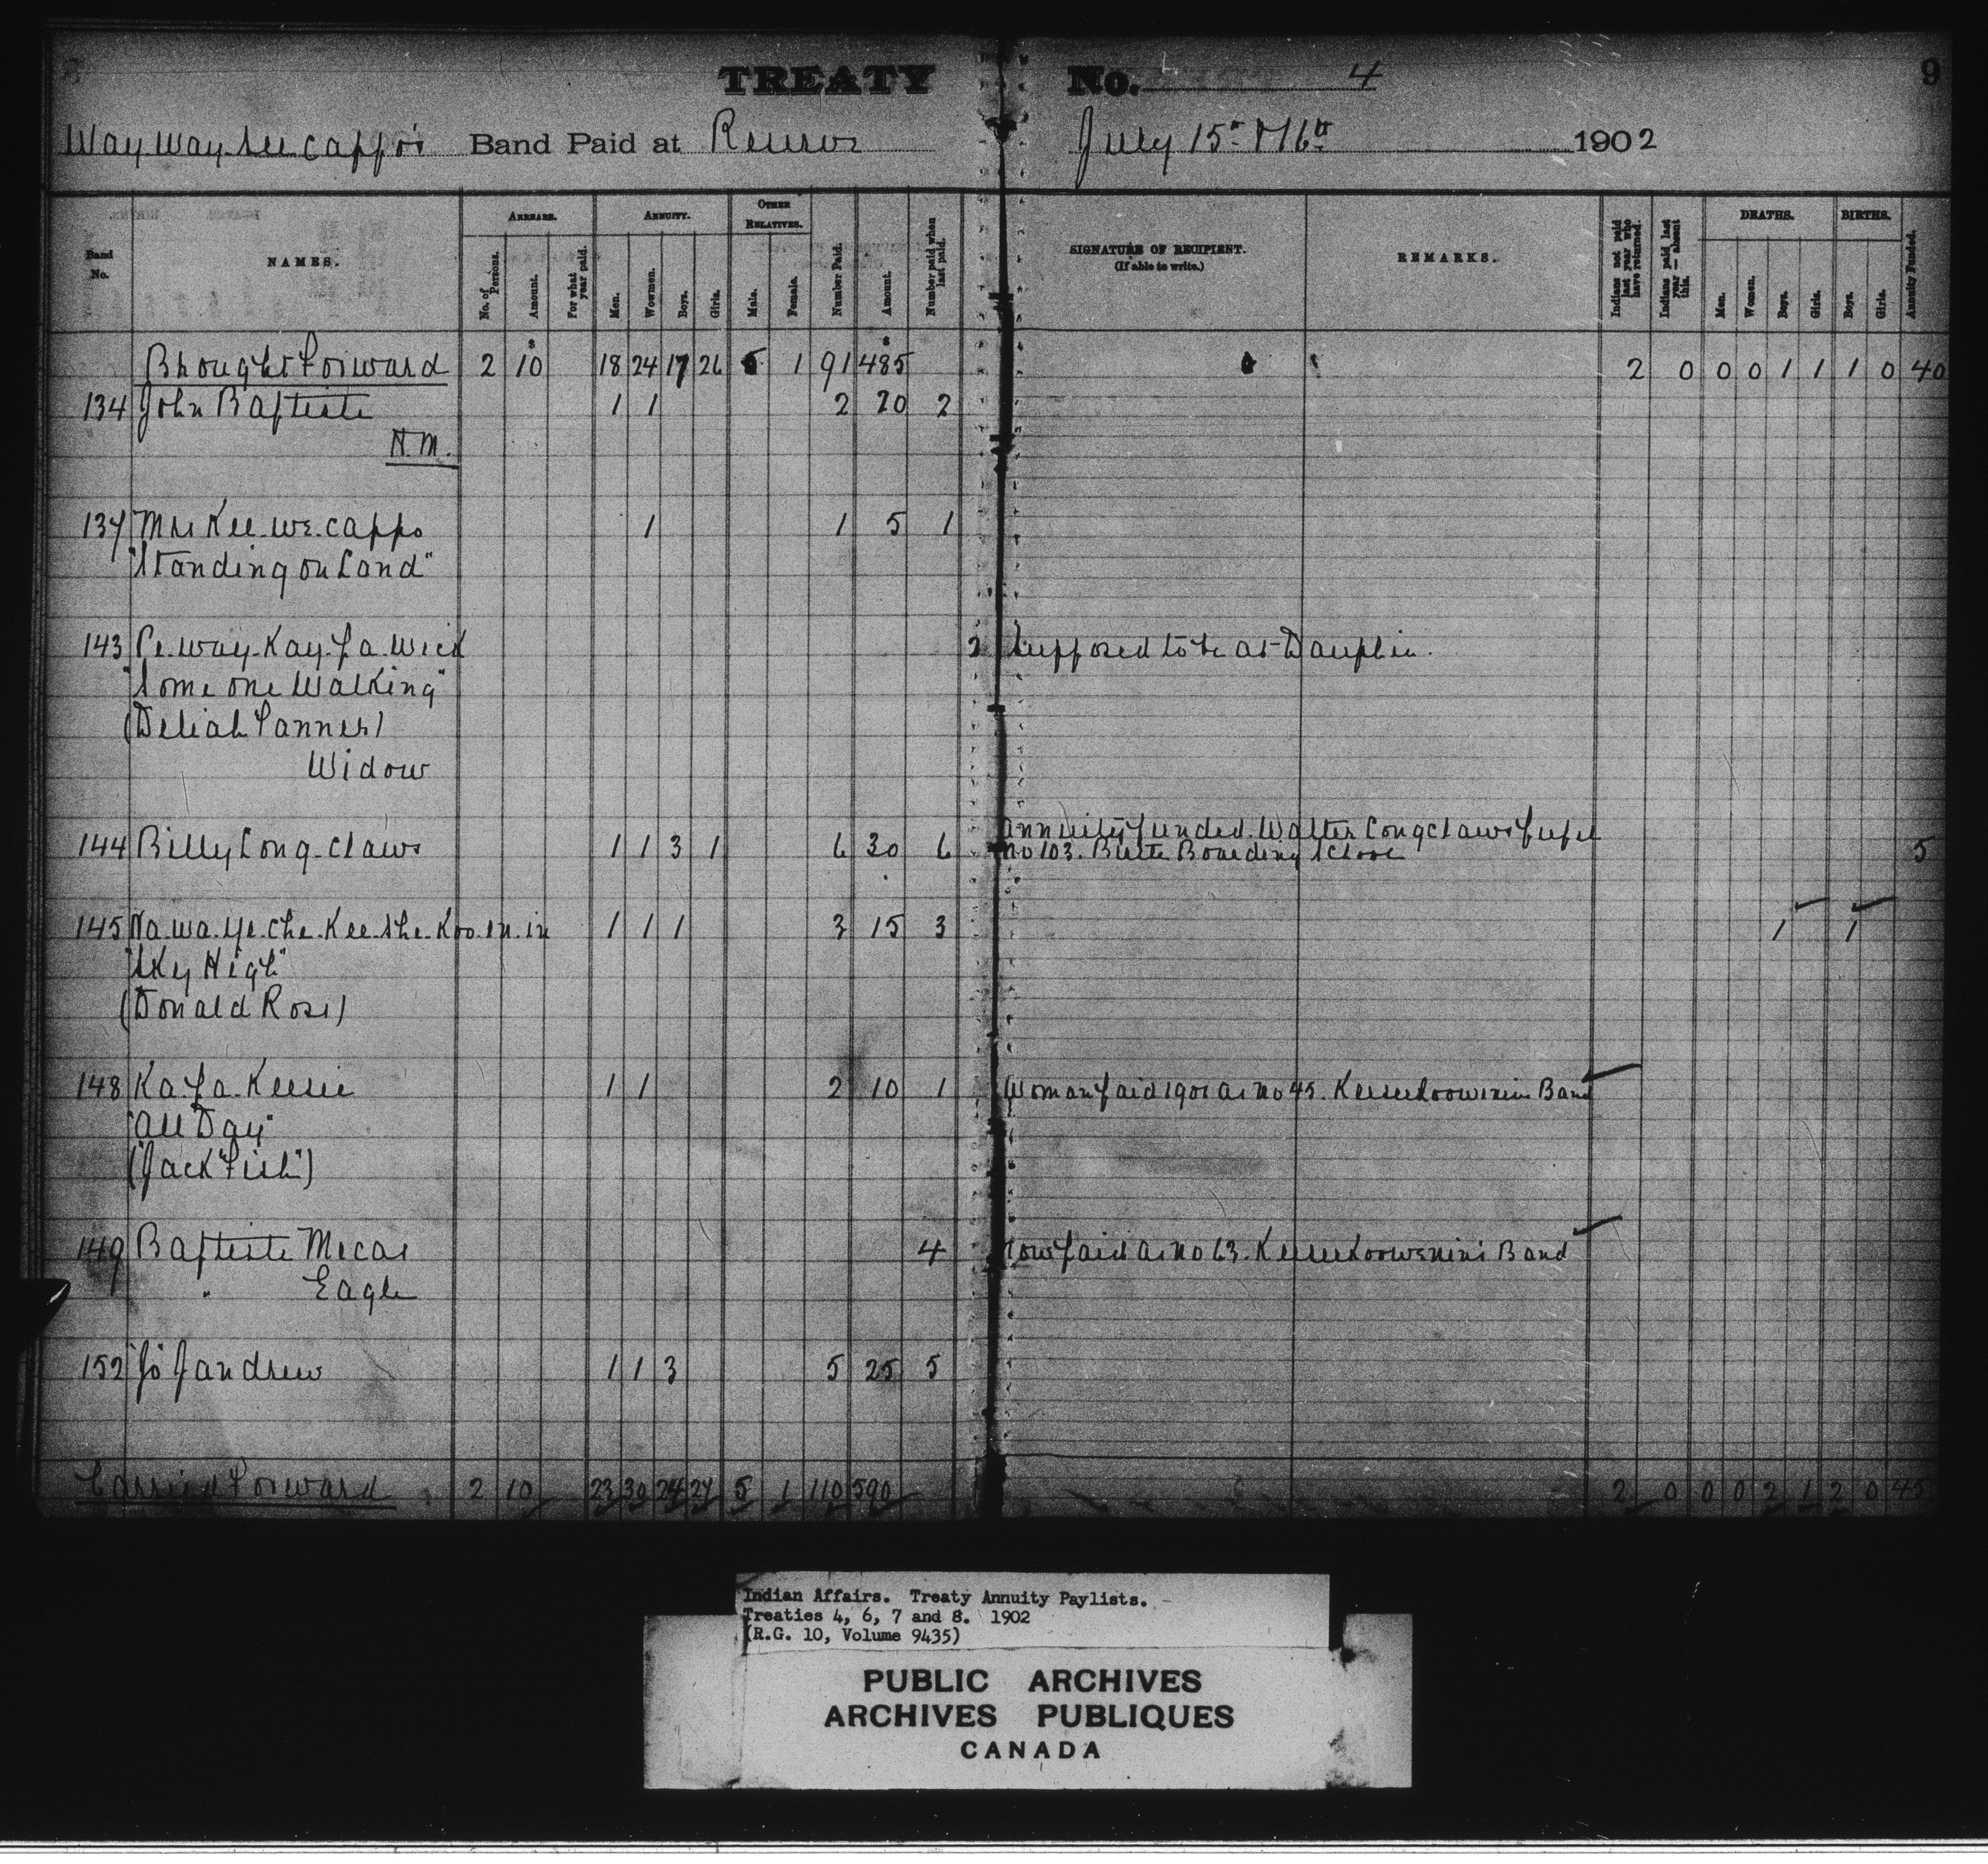 TREATY No. 4 9
Way way see cappo's Band Paid at Reserve July 15th & 16th 1902
Band No. NAMES. ARREARS. No. of Persons. Amount. For what year paid. ANNUITY. Men. Women. Boys. Girls. OTHER RELATIVES. Male. Female. Number Paid. Amount. Number paid when last paid. SIGNATURE OF RECIPIENT. (If able to write.) REMARKS. Indians not paid last year who have returned. Indians paid last year — absent this. DEATHS. Men. Women. Boys. Girls. BIRTHS. Boys. Girls. Annuity Funded.
Brought Forward 2 $10 18 24 17 26 5 1 91 $485 2 0 0 0 1 1 1 0 40
134 John Baptiste 1 1 2 20 2
H.M.
137 Mrs Kee.we.cappo 1 1 5 1
"Standing on Land"
143 Pe.way.Kay.pa.wick 2 Supposed to be at Dauphin.
"Some one Walking"
(Deliah Tanner)
Widow
144 Billy Long-claws 1 1 3 1 6 30 6 Annuity funded. Walter Longclaws pupil
No 103. Birtle Boarding School 5
145 Na.wa.ye.che.Kee.she.Koo.in.in 1 1 1 3 15 3 1 1
"Sky High"
(Donald Ross)
148 Ka.pa.Keesic 1 1 2 10 1 Woman paid 1901 as No 45. Keeseekoowenin Band
"All Day"
("Jack Fish")
149 Baptiste Mecas 4 Now paid as No 63. Keeseekoowenin's Band
" Eagle
152 "Jo" Jandrew 1 1 3 5 25 5
Carried Forward 2 10 23 30 24 27 5 1 110 590 2 0 0 0 2 1 2 0 45
Indian Affairs. Treaty Annuity Paylists.
Treaties 4, 6, 7 and 8. 1902
(R.G. 10, Volume 9435)
PUBLIC ARCHIVES
ARCHIVES PUBLIQUES
CANADA